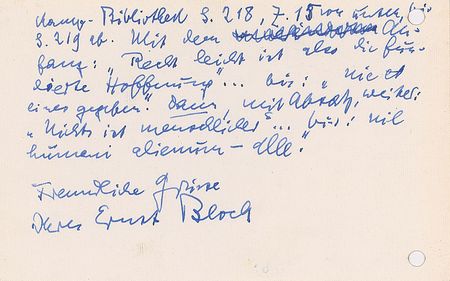 kamp-Bibliothek S. 218, Z. 15 von unten, bis
S. 219 ob. Mit dem An-
fang: "Recht leicht ist also die fun-
dierte Hoffnung"... bis: "nie es
eines gegeben." Dann, mit Absatz, weiter:
"Nichts ist menschlicher"... bis: "nil
humani alienum – alle."
Freundliche Grüsse
Ihres Ernst Bloch